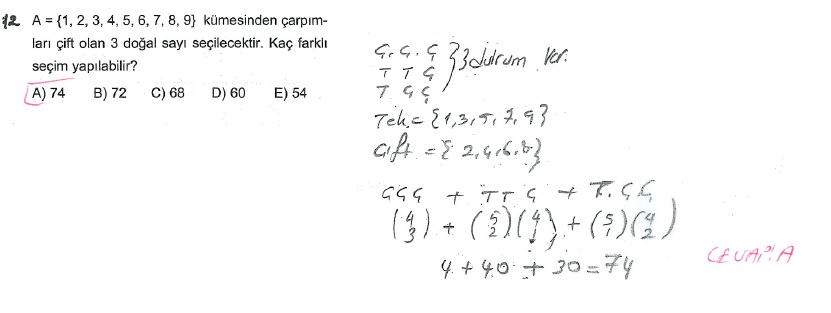 12 A = {1, 2, 3, 4, 5, 6, 7, 8, 9} kümesinden çarpım-
ları çift olan 3 doğal sayı seçilecektir. Kaç farklı
seçim yapılabilir?
A) 74 B) 72 C) 68 D) 60 E) 54
Ç. Ç. Ç
T T Ç } 3 durum var.
T Ç Ç
Tek = {1,3,5,7,9}
Çift = {2,4,6,8}
ÇÇÇ + TTÇ + T.ÇÇ
(4 3) + (5 2)(4 1) + (5 1)(4 2)
4 + 40 + 30 = 74
CEVAP: A